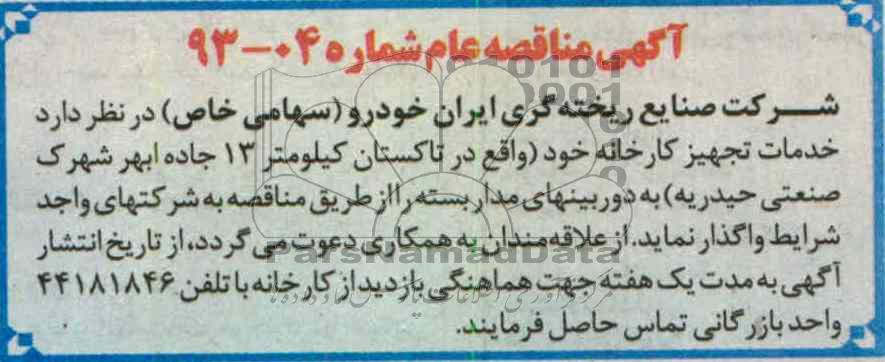 آگهی مناقصه عام شماره ۰۴-۹۳
شرکت صنایع ریخته‌گری ایران خودرو (سهامی خاص) در نظر دارد
خدمات تجهیز کارخانه خود (واقع در تاکستان کیلومتر ۱۳ جاده ابهر شهرک
صنعتی حیدریه) به دوربینهای مداربسته را از طریق مناقصه به شرکتهای واجد
شرایط واگذار نماید. از علاقه‌مندان به همکاری دعوت می گردد، از تاریخ انتشار
آگهی به مدت یک هفته جهت هماهنگی بازدید از کارخانه با تلفن ۴۴۱۸۱۸۴۶
واحد بازرگانی تماس حاصل فرمایند.
ParsNamadData